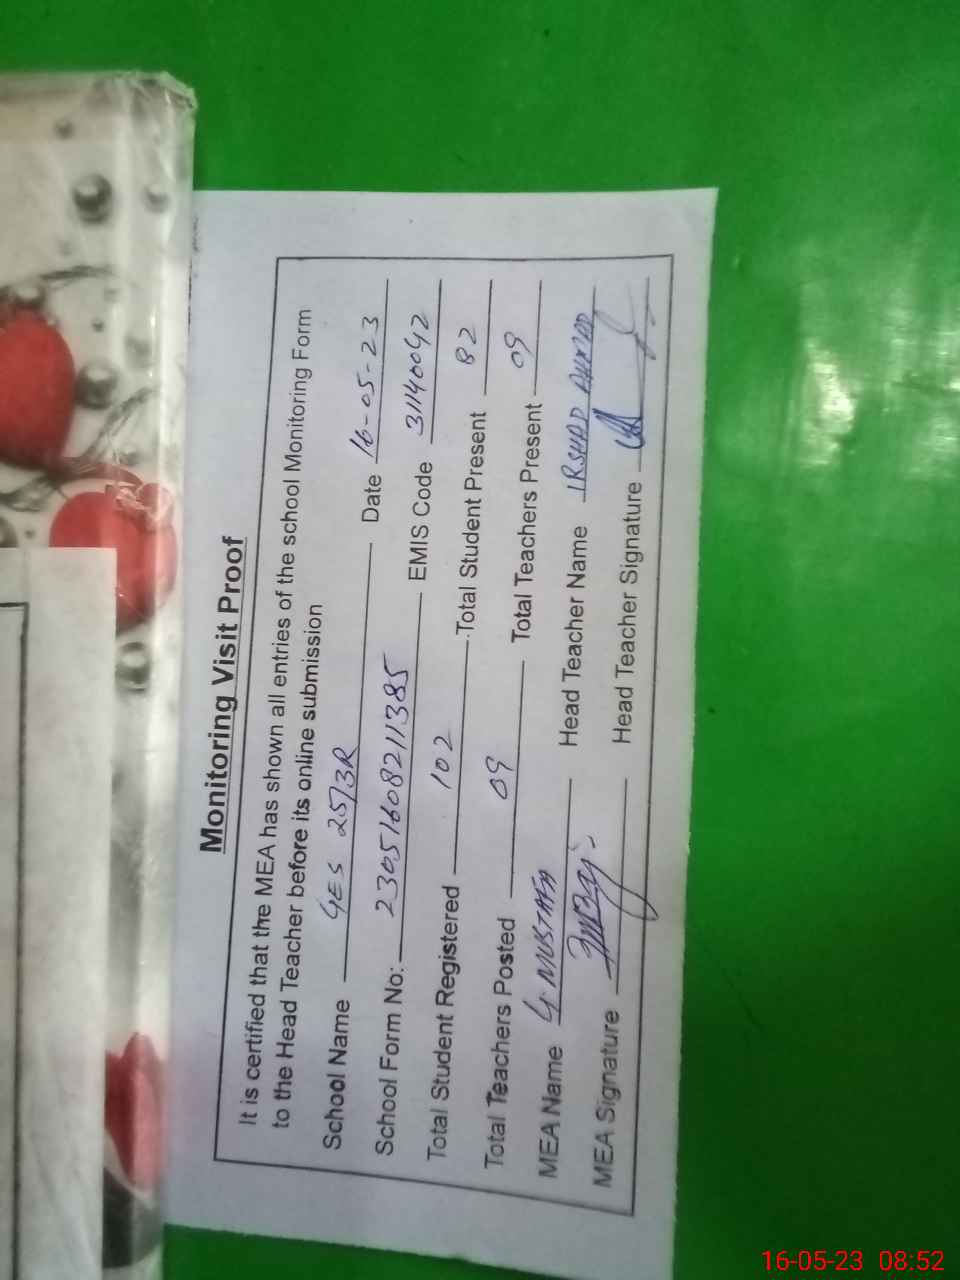 Monitoring Visit Proof
It is certified that the MEA has shown all entries of the school Monitoring Form
to the Head Teacher before its online submission
School Name GES 257/3R Date 16-05-23
School Form No: 23051608211385 EMIS Code 31140042
Total Student Registered 102 Total Student Present 82
Total Teachers Posted 09 Total Teachers Present 09
MEA Name G. MUSTAFA Head Teacher Name IRSHAD AHMAD
MEA Signature Head Teacher Signature
16-05-23 08:52